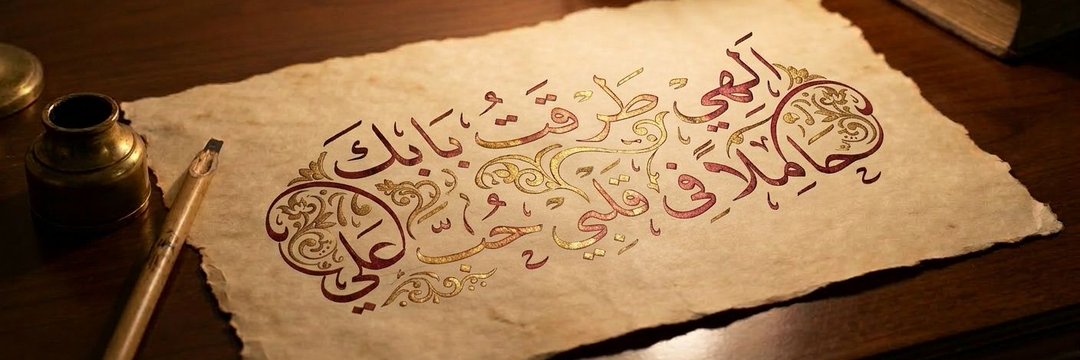 إلهي طرقتُ بَابَك
حَامِلاً في قلبي حُبَّ عَلي